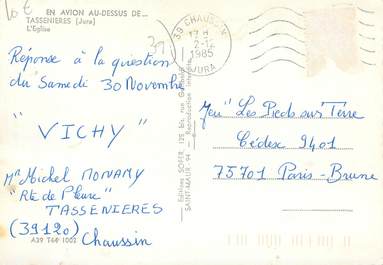 10 €
EN AVION AU-DESSUS DE...
TASSENIERES (Jura)
L'Eglise
39
Réponse à la question
du Samedi 30 Novembre
" VICHY "
Mr Michel MONAMY
"Rte de Pleure"
TASSENIERES
(39120) Chaussin
A39 T64 1002
Editions SOFER, 125 bis, rue
SAINT-MAUR - 94 - Reproduction interdite
39 CHAUSSIN
17 H
2-12
1985
JURA
Jeu "Les Pieds sur Terre
Cédex 9401
75701 Paris-Brune